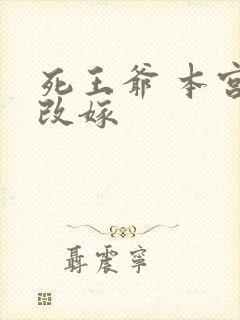 死王爷 本宫
改嫁
聂震宁